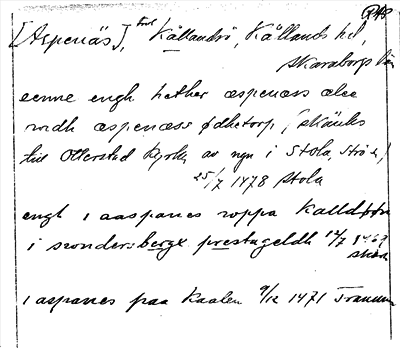 [Aspenäs], Kållandsö, Kållands hd,
Skaraborgs län
eenne engh hether aspenæs æle
widh aspenæss ødhetorp, (skänks
till Otterstad Kyrka av ngn i Stola, Strö s,)
25/7 1478 Stola
engl i aaspanes uppa Kalland
i swndersbergx prestageldh 12/7 1469
i aspanes paa Kaalen 9/12 1471